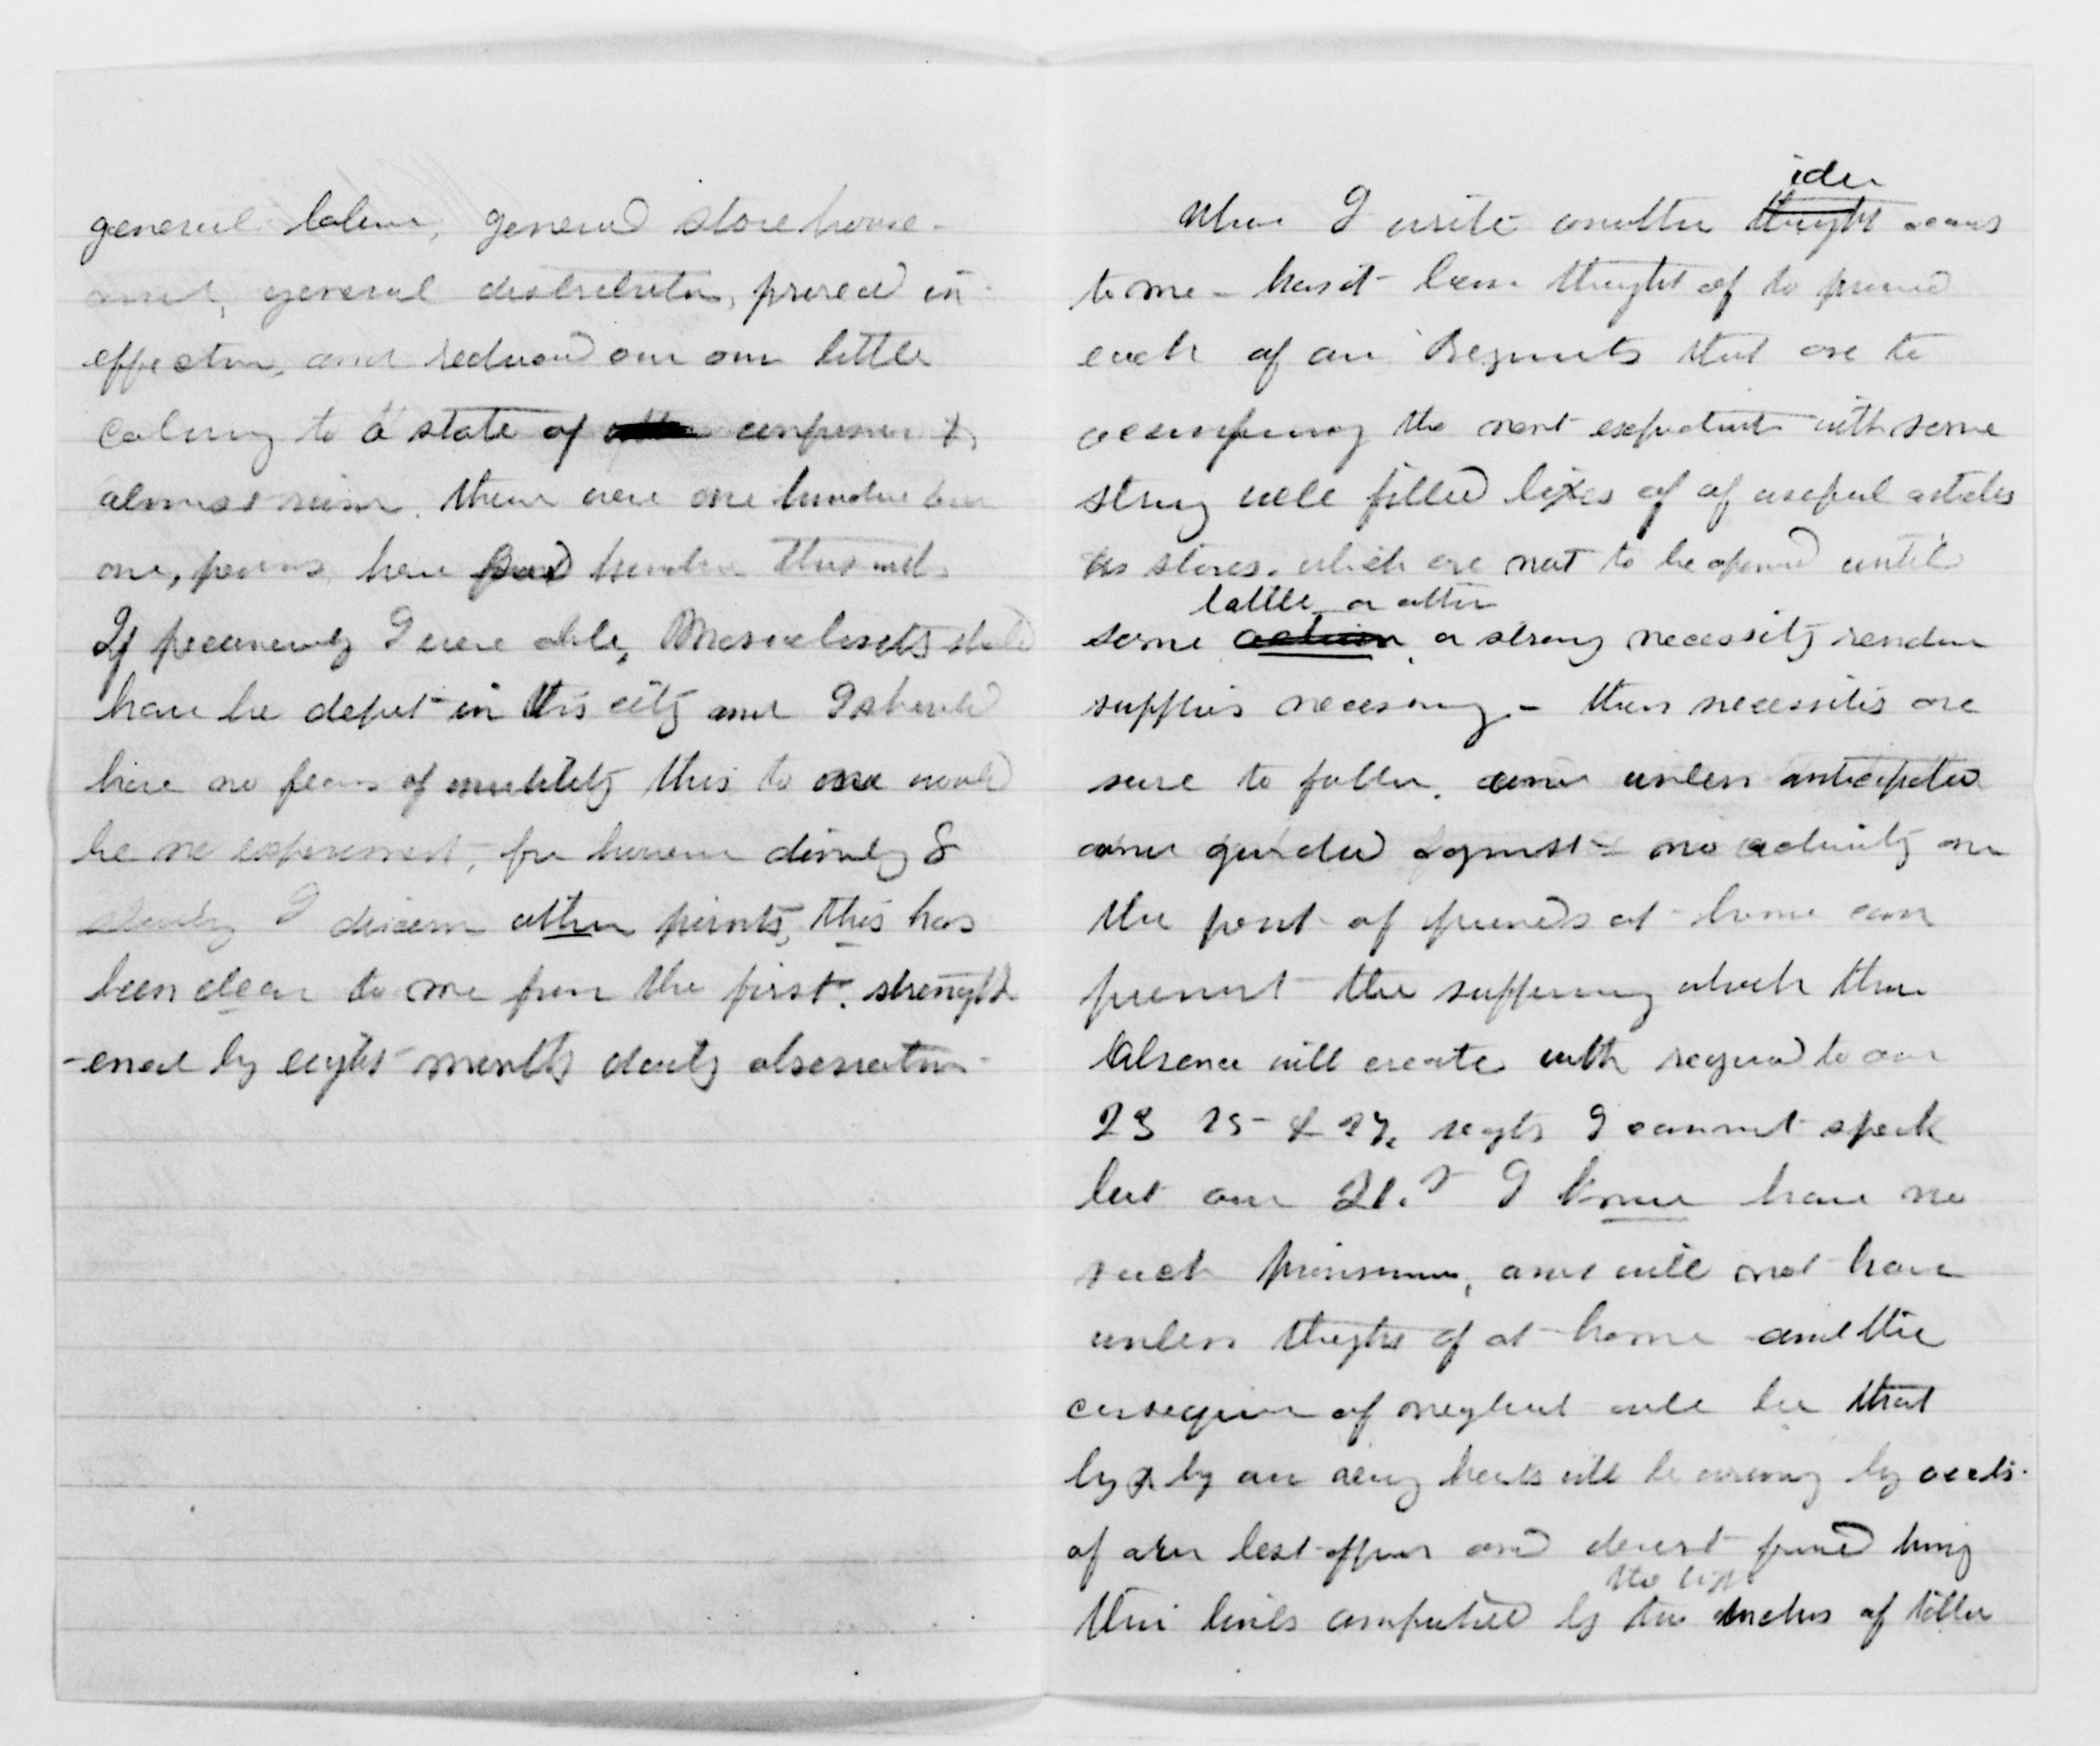 general labor, general store house
and, general distribution, proved in
effective, and reduced our own little
Colony to a state of confusion &
almost ruin. there were one hundred
one, persons, here hundred thousands
If pecuniarily I were able, Massachusetts should
have her depot in this city and I should
have no fears of inutility this to me would
be no experiment, for however dimly &
slowly I discern other points, this has
been clear to me from the first, strength
-ened by eight months daily observation -
While I write another idea thought occurs
to me - has it been thought of to provide
each of our Regiments that are to
accompany the next expedition with some
strong well filled boxes of of useful articles
& stores. which are not to be opened until
battle or other
some action, or strong necessity render
supplies necessary - these necessities are
sure to follow, and unless anticipated
and guarded against - no activity on
the part of friends at home can
prevent the suffering which their
absence will create with regard to our
23 25 & 27, regts I cannot speak
but our 21st I know have no
such provision, and will not have
unless thought of at home and the
consequence of neglect will be that
by & by our very hearts will be wrung by accts.
of our best officers and dearest friends having
their limbs amputated by the light
two inches of tallow